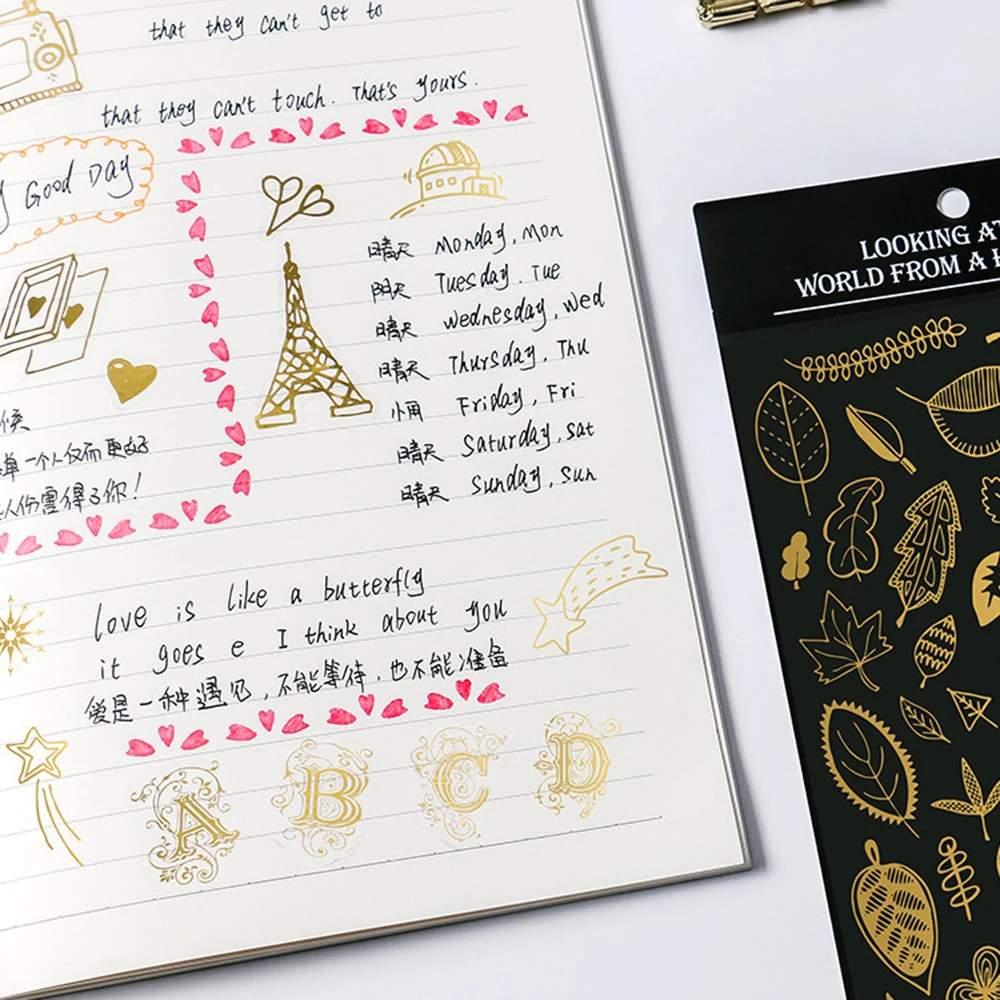 that they can't get to
that they can't touch. That's yours.
Good Day
晴天 Monday, Mon
阴天 Tuesday, Tue
晴天 Wednesday, Wed
晴天 Thursday, Thu
小雨 Friday, Fri
晴天 Saturday, Sat
晴天 Sunday, Sun
候
单一个人仅而更好
得了你!
love is like a butterfly
it goes e I think about you
爱是一种遇见,不能等待,也不能准备
A B C D
LOOKING AT
WORLD FROM A